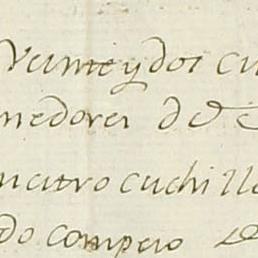 Veinte y dos cu
nedores de
uatro cuchill
do compero